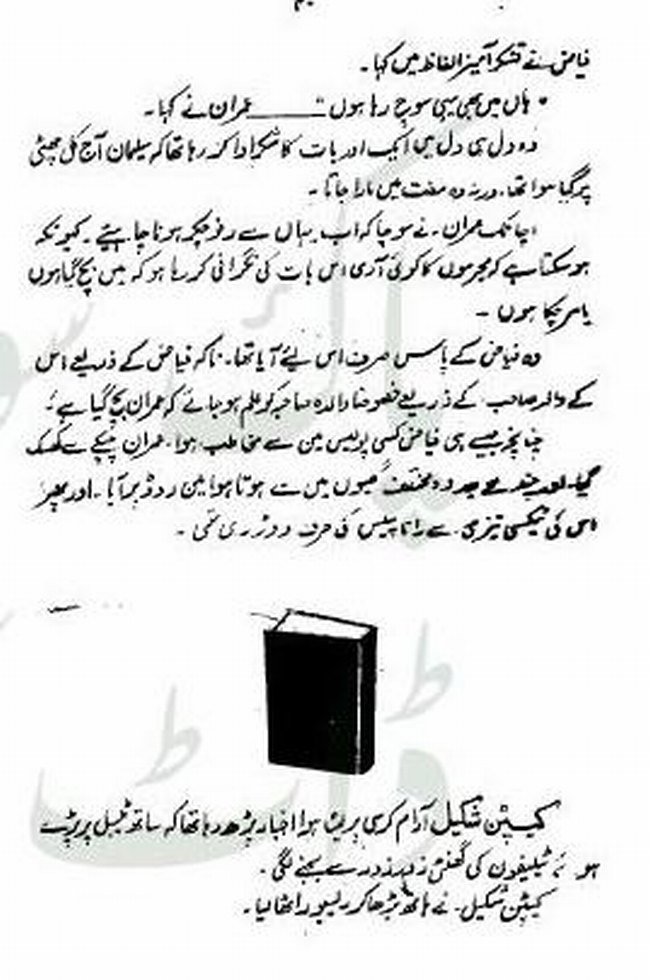 فیاض نے تشکر آمیز الفاظ میں کہا۔
" ہاں میں بھی یہی سوچ رہا ہوں " ــــــــ عمران نے کہا۔
وہ دل ہی دل میں ایک اور بات کا شکر ادا کر رہا تھا کہ سلیمان آج کل چھٹی
پر گیا ہوا تھا۔ ورنہ وہ مفت میں مارا جاتا۔
اچانک عمران نے سوچا کہ اب یہاں سے رفو چکر ہونا چاہیئے۔ کیونکہ
ہو سکتا ہے کہ مجرموں کا کوئی آدمی اس بات کی نگرانی کر رہا ہو کہ میں بچ گیا ہوں
یا مر چکا ہوں ۔
وہ فیاض کے پاس صرف اس لیئے آیا تھا۔ تاکہ فیاض کے ذریعے اس
کے والد صاحب کے ذریعے خصوصاً والدہ صاحبہ کو علم ہو جائے کہ عمران بچ گیا ہے۔
چنانچہ جیسے ہی فیاض کسی پولیس مین سے مخاطب ہوا۔ عمران چپکے سے کھسک
گیا۔ اور چند لمحے بعد وہ مختلف گلیوں میں سے ہوتا ہوا مین روڈ پر آیا۔ اور پھر
اس کی ٹیکسی تیزی سے رانا پیلس کی طرف دوڑ رہی تھی۔
کیپٹن شکیل آرام کرسی پر لیٹا ہوا اخبار پڑھ رہا تھا کہ ساتھ ٹیبل پر پڑے
ہوئے ٹیلیفون کی گھنٹی زور زور سے بجنے لگی۔
کیپٹن شکیل نے ہاتھ بڑھا کر رسیور اٹھا لیا۔
پاک